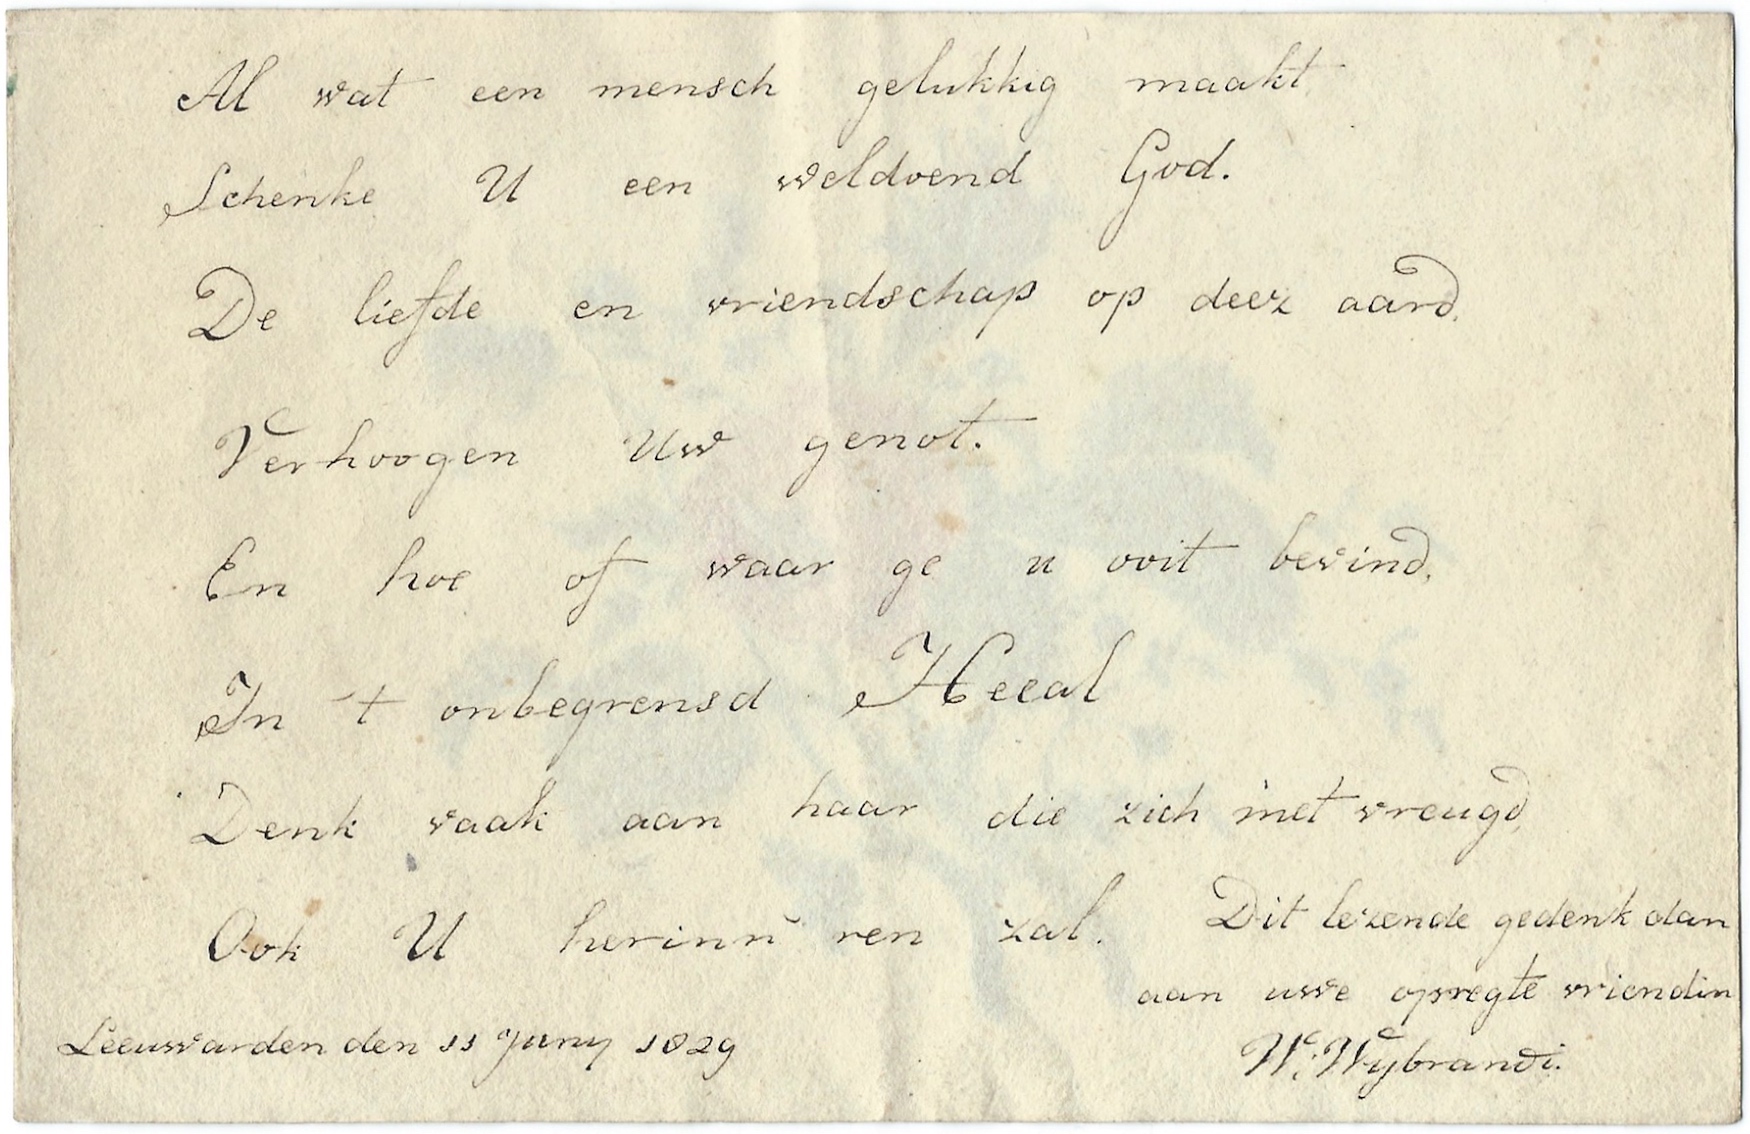 Al wat een mensch gelukkig maakt
Schenke U een weldoend God.
De liefde en vriendschap op deez aard,
Verhoogen Uw genot.
En hoe of waar ge u ooit bevind,
In 't onbegrensd Heeal
Denk vaak aan haar die zich met vreugd,
Ook U herinn'ren zal.
Dit lezende gedenk dan
aan uwe opregte vriendin
W. Wybrandi.
Leeuwarden den 11 Juny 1829